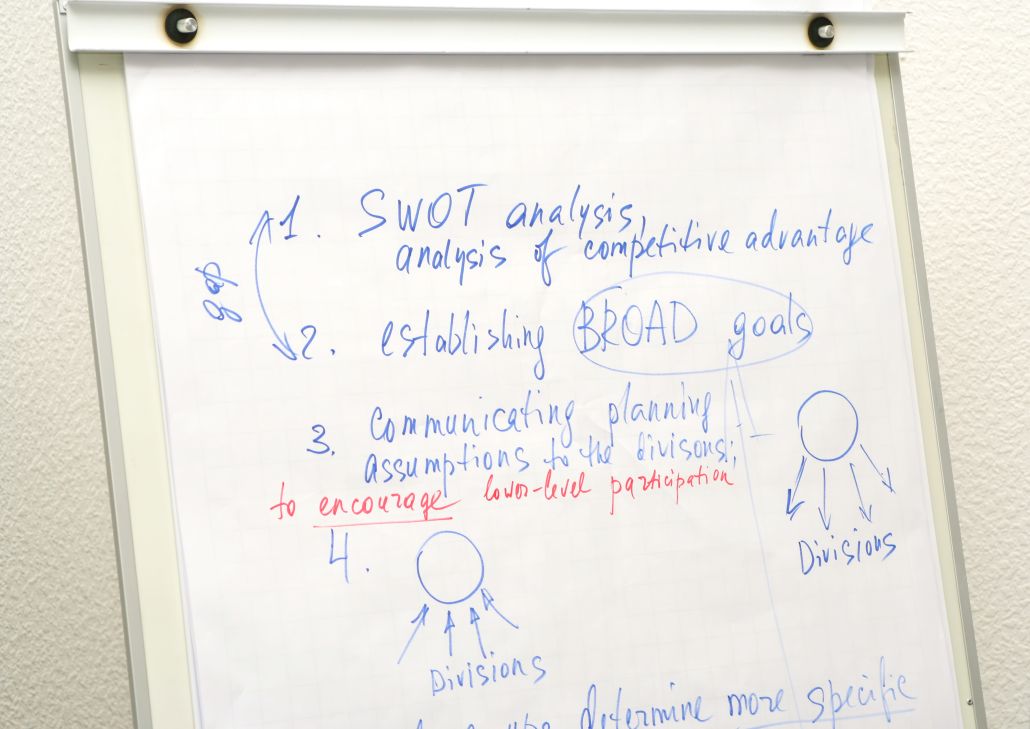 gap
1. SWOT analysis,
analysis of competitive advantage
2. establishing BROAD goals
3. Communicating planning
assumptions to the divisons;
to encourage lower-level participation
Divisions
4.
Divisions
determine more specific